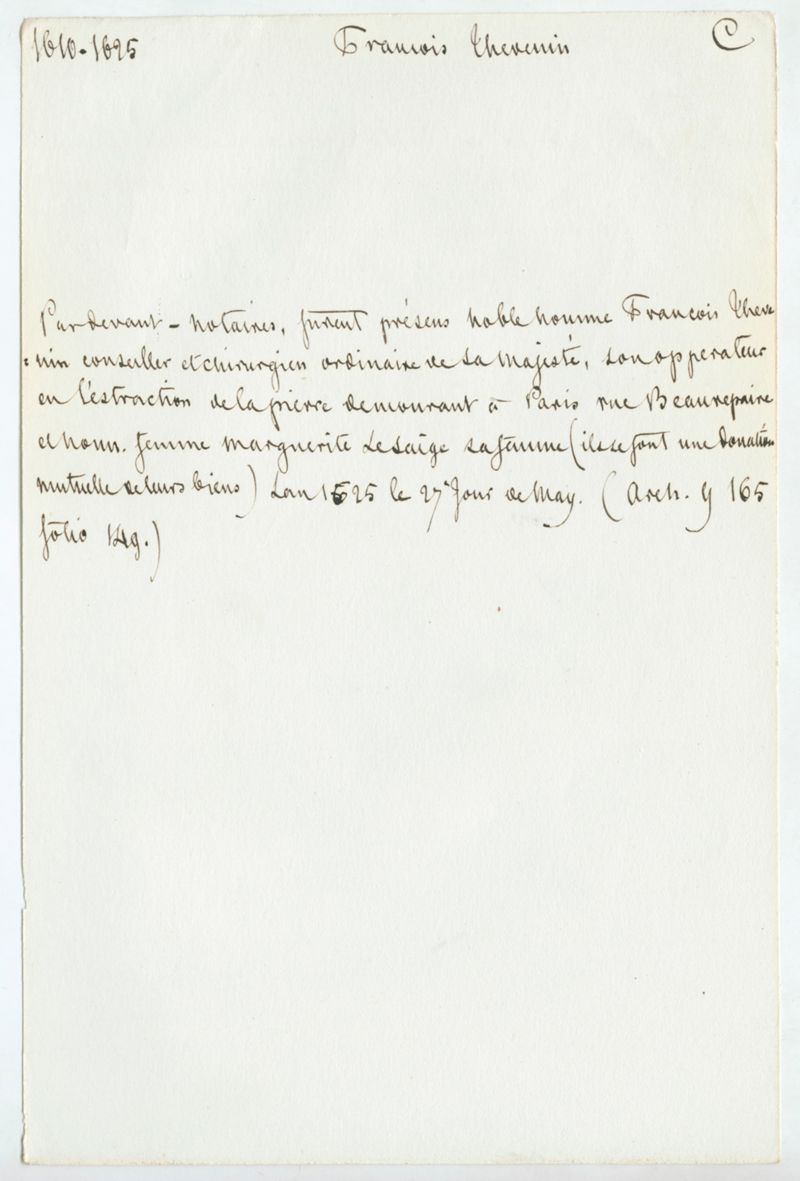 1610-1625 François Thevenin C
Pardevant - notaires, furent présens noble homme François Theve
=nin conseiller et chirurgien ordinaire de Sa Majesté, son opperateur
en l'estraction de la pierre demourant à Paris rue Beaurepaire
et honn. femme Marguerite Lesaige sa femme (ils se font une donation
mutuelle de leurs biens) Lan 1625 le 27e Jour de May. (Arch. Y 165
folio 149.)